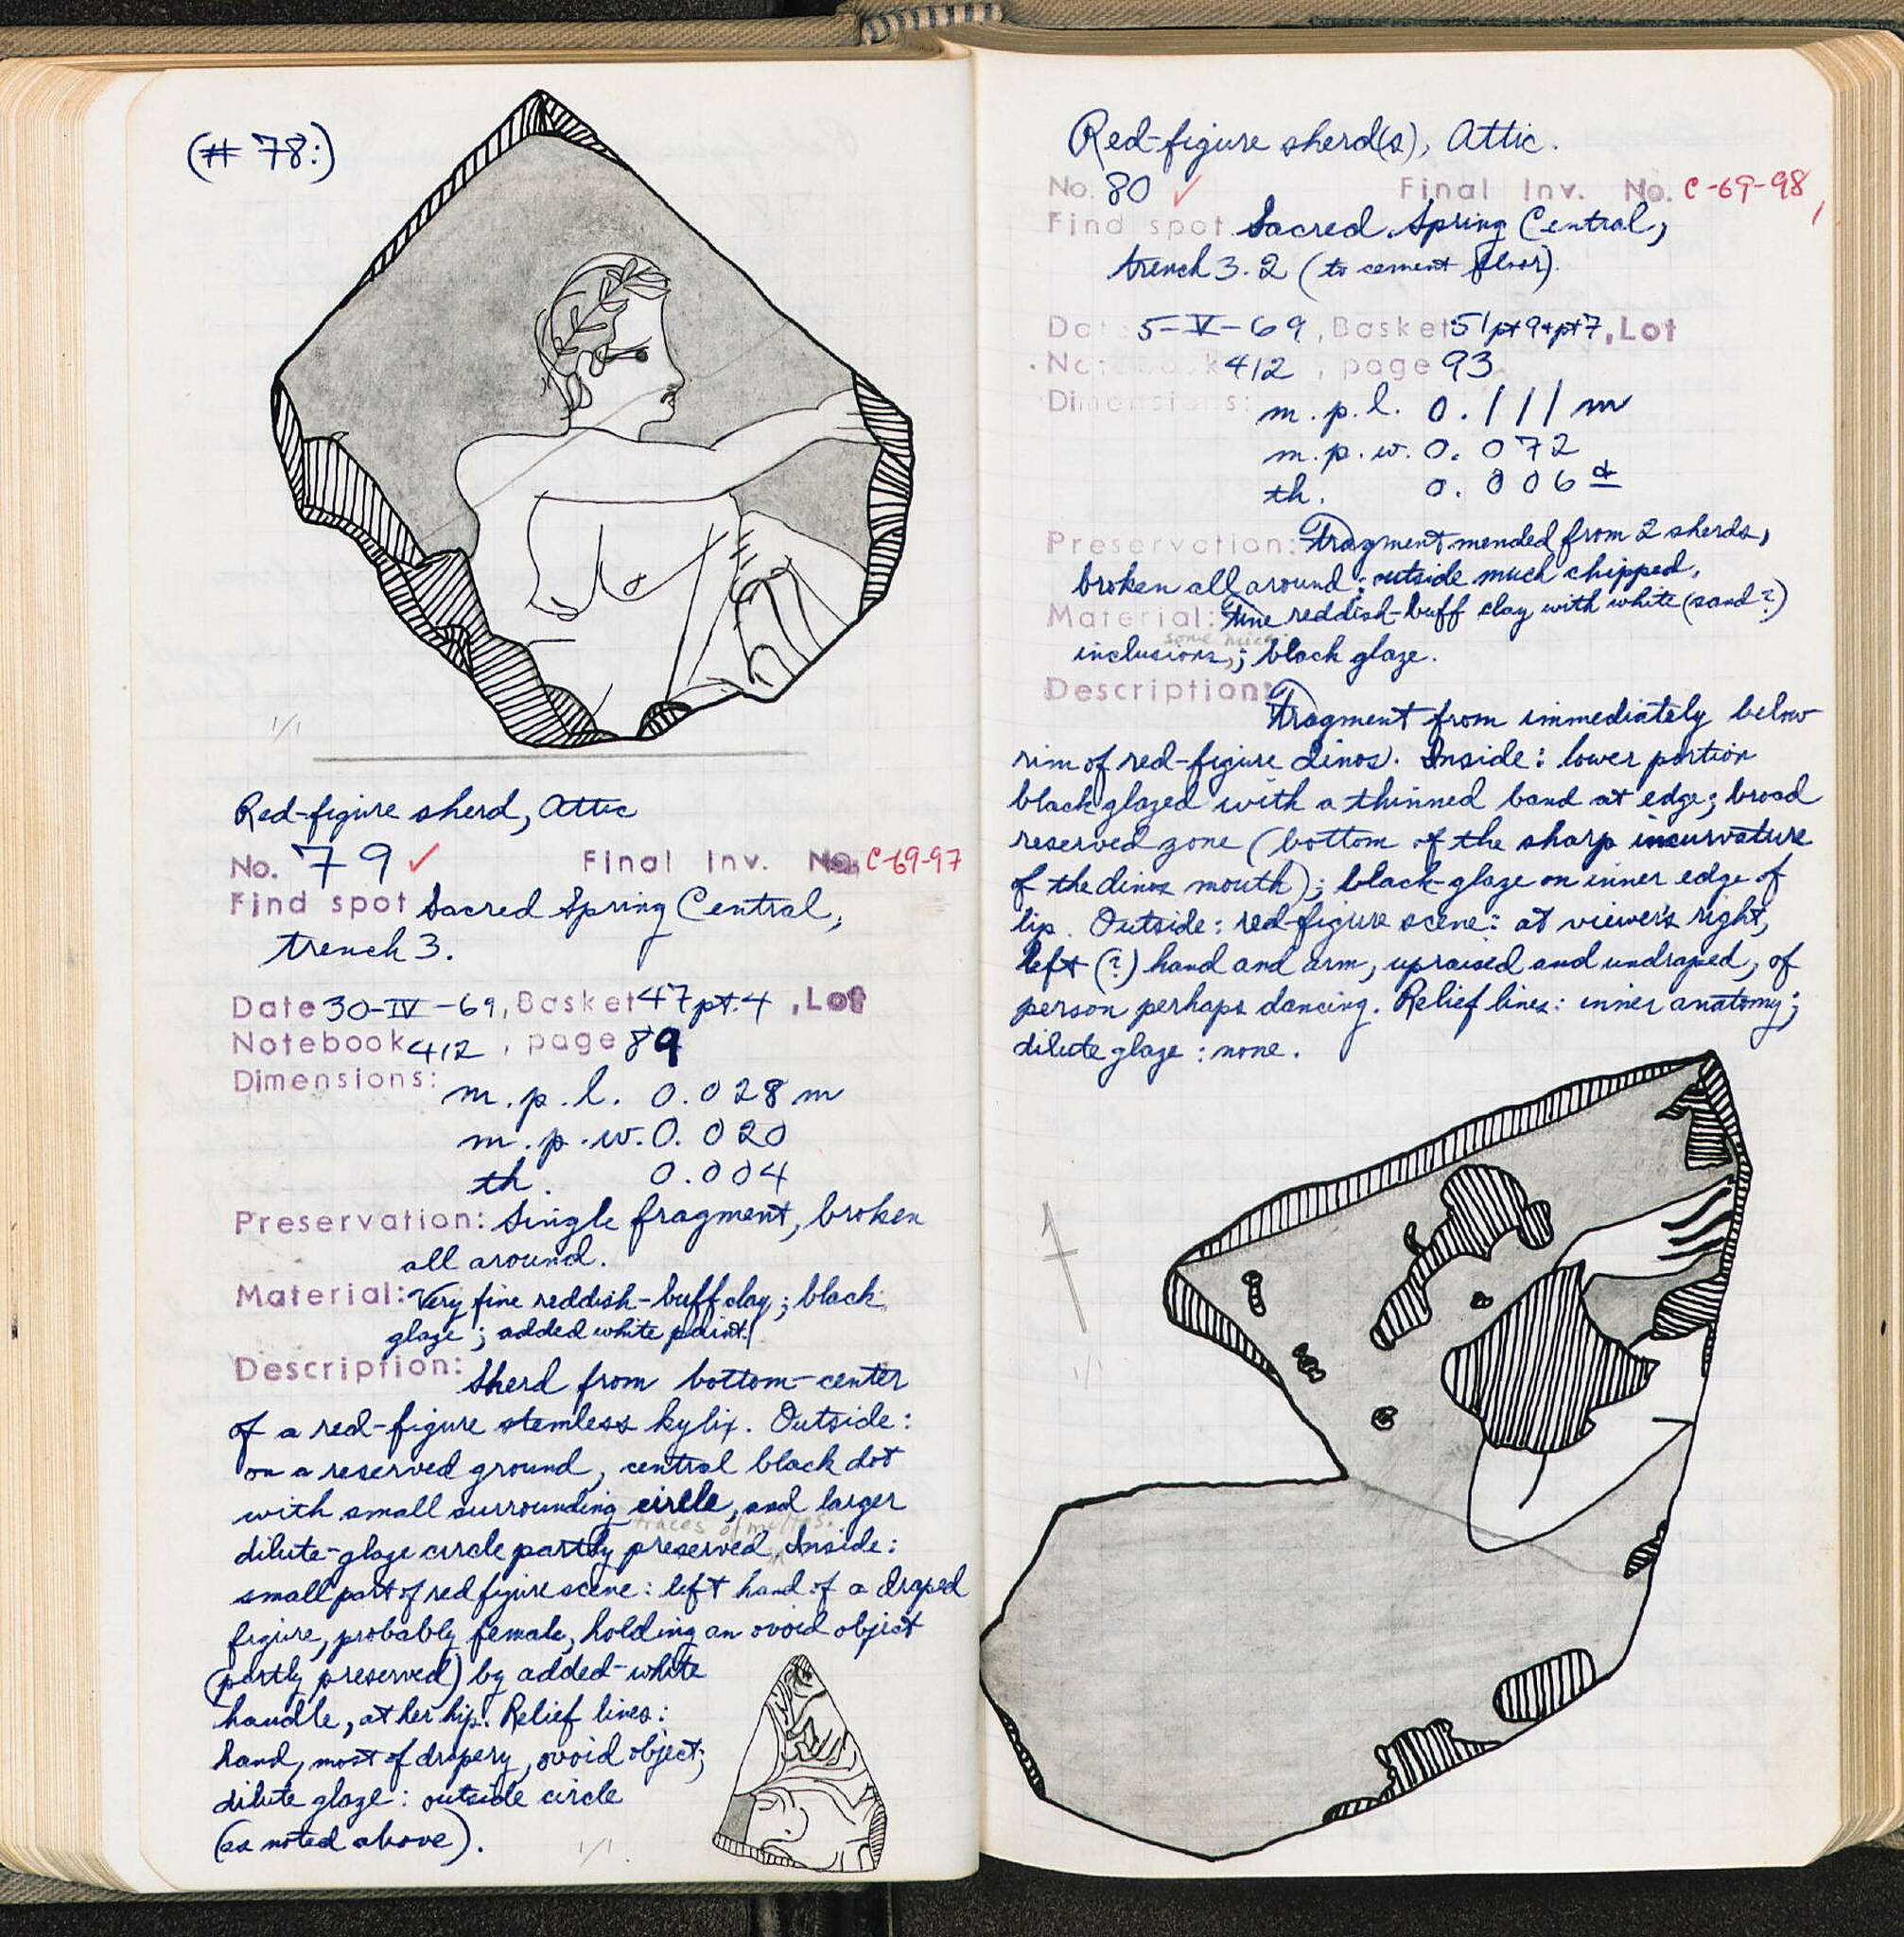 (# 78:)
1/1
Red-figure sherd, Attic
No. 79 ✓ Final Inv. No. C-69-97
Find spot Sacred Spring Central,
trench 3.
Date 30-IV-69, Basket 47 pt. 4, Lot
Notebook 412, page 89
Dimensions: m.p.l. 0.028 m
m.p.w. 0.020
th. 0.004
Preservation: Single fragment, broken
all around.
Material: Very fine reddish-buff clay; black
glaze; added white paint.
Description: Sherd from bottom-center
of a red-figure stemless kylix. Outside:
on a reserved ground, central black dot
with small surrounding circle, and larger
traces of miltos.
dilute-glaze circle partly preserved. Inside:
small part of red figure scene: left hand of a draped
figure, probably female, holding an ovoid object
(partly preserved) by added-white
handle, at her hip. Relief lines:
hand, most of drapery, ovoid object;
dilute glaze: outside circle
(as noted above).
1/1.
Red-figure sherd(s), Attic.
No. 80 ✓ Final Inv. No. C-69-98
Find spot Sacred Spring Central,
trench 3.2 (to cement floor).
Date 5-V-69, Basket 51 pt 9 + pt 7, Lot
Notebook 412, page 93
Dimensions: m.p.l. 0.111 m
m.p.w. 0.072
th. 0.006 ±
Preservation: Fragment mended from 2 sherds,
broken all around; outside much chipped.
Material: Fine reddish-buff clay with white (sand?)
some mica
inclusions; black glaze.
Description: Fragment from immediately below
rim of red-figure dinos. Inside: lower portion
black glazed with a thinned band at edge; broad
reserved zone (bottom of the sharp incurvature
of the dinos mouth); black-glaze on inner edge of
lip. Outside: red-figure scene: at viewer's right,
left (?) hand and arm, upraised and undraped, of
person perhaps dancing. Relief lines: inner anatomy;
dilute glaze: none.
1/1